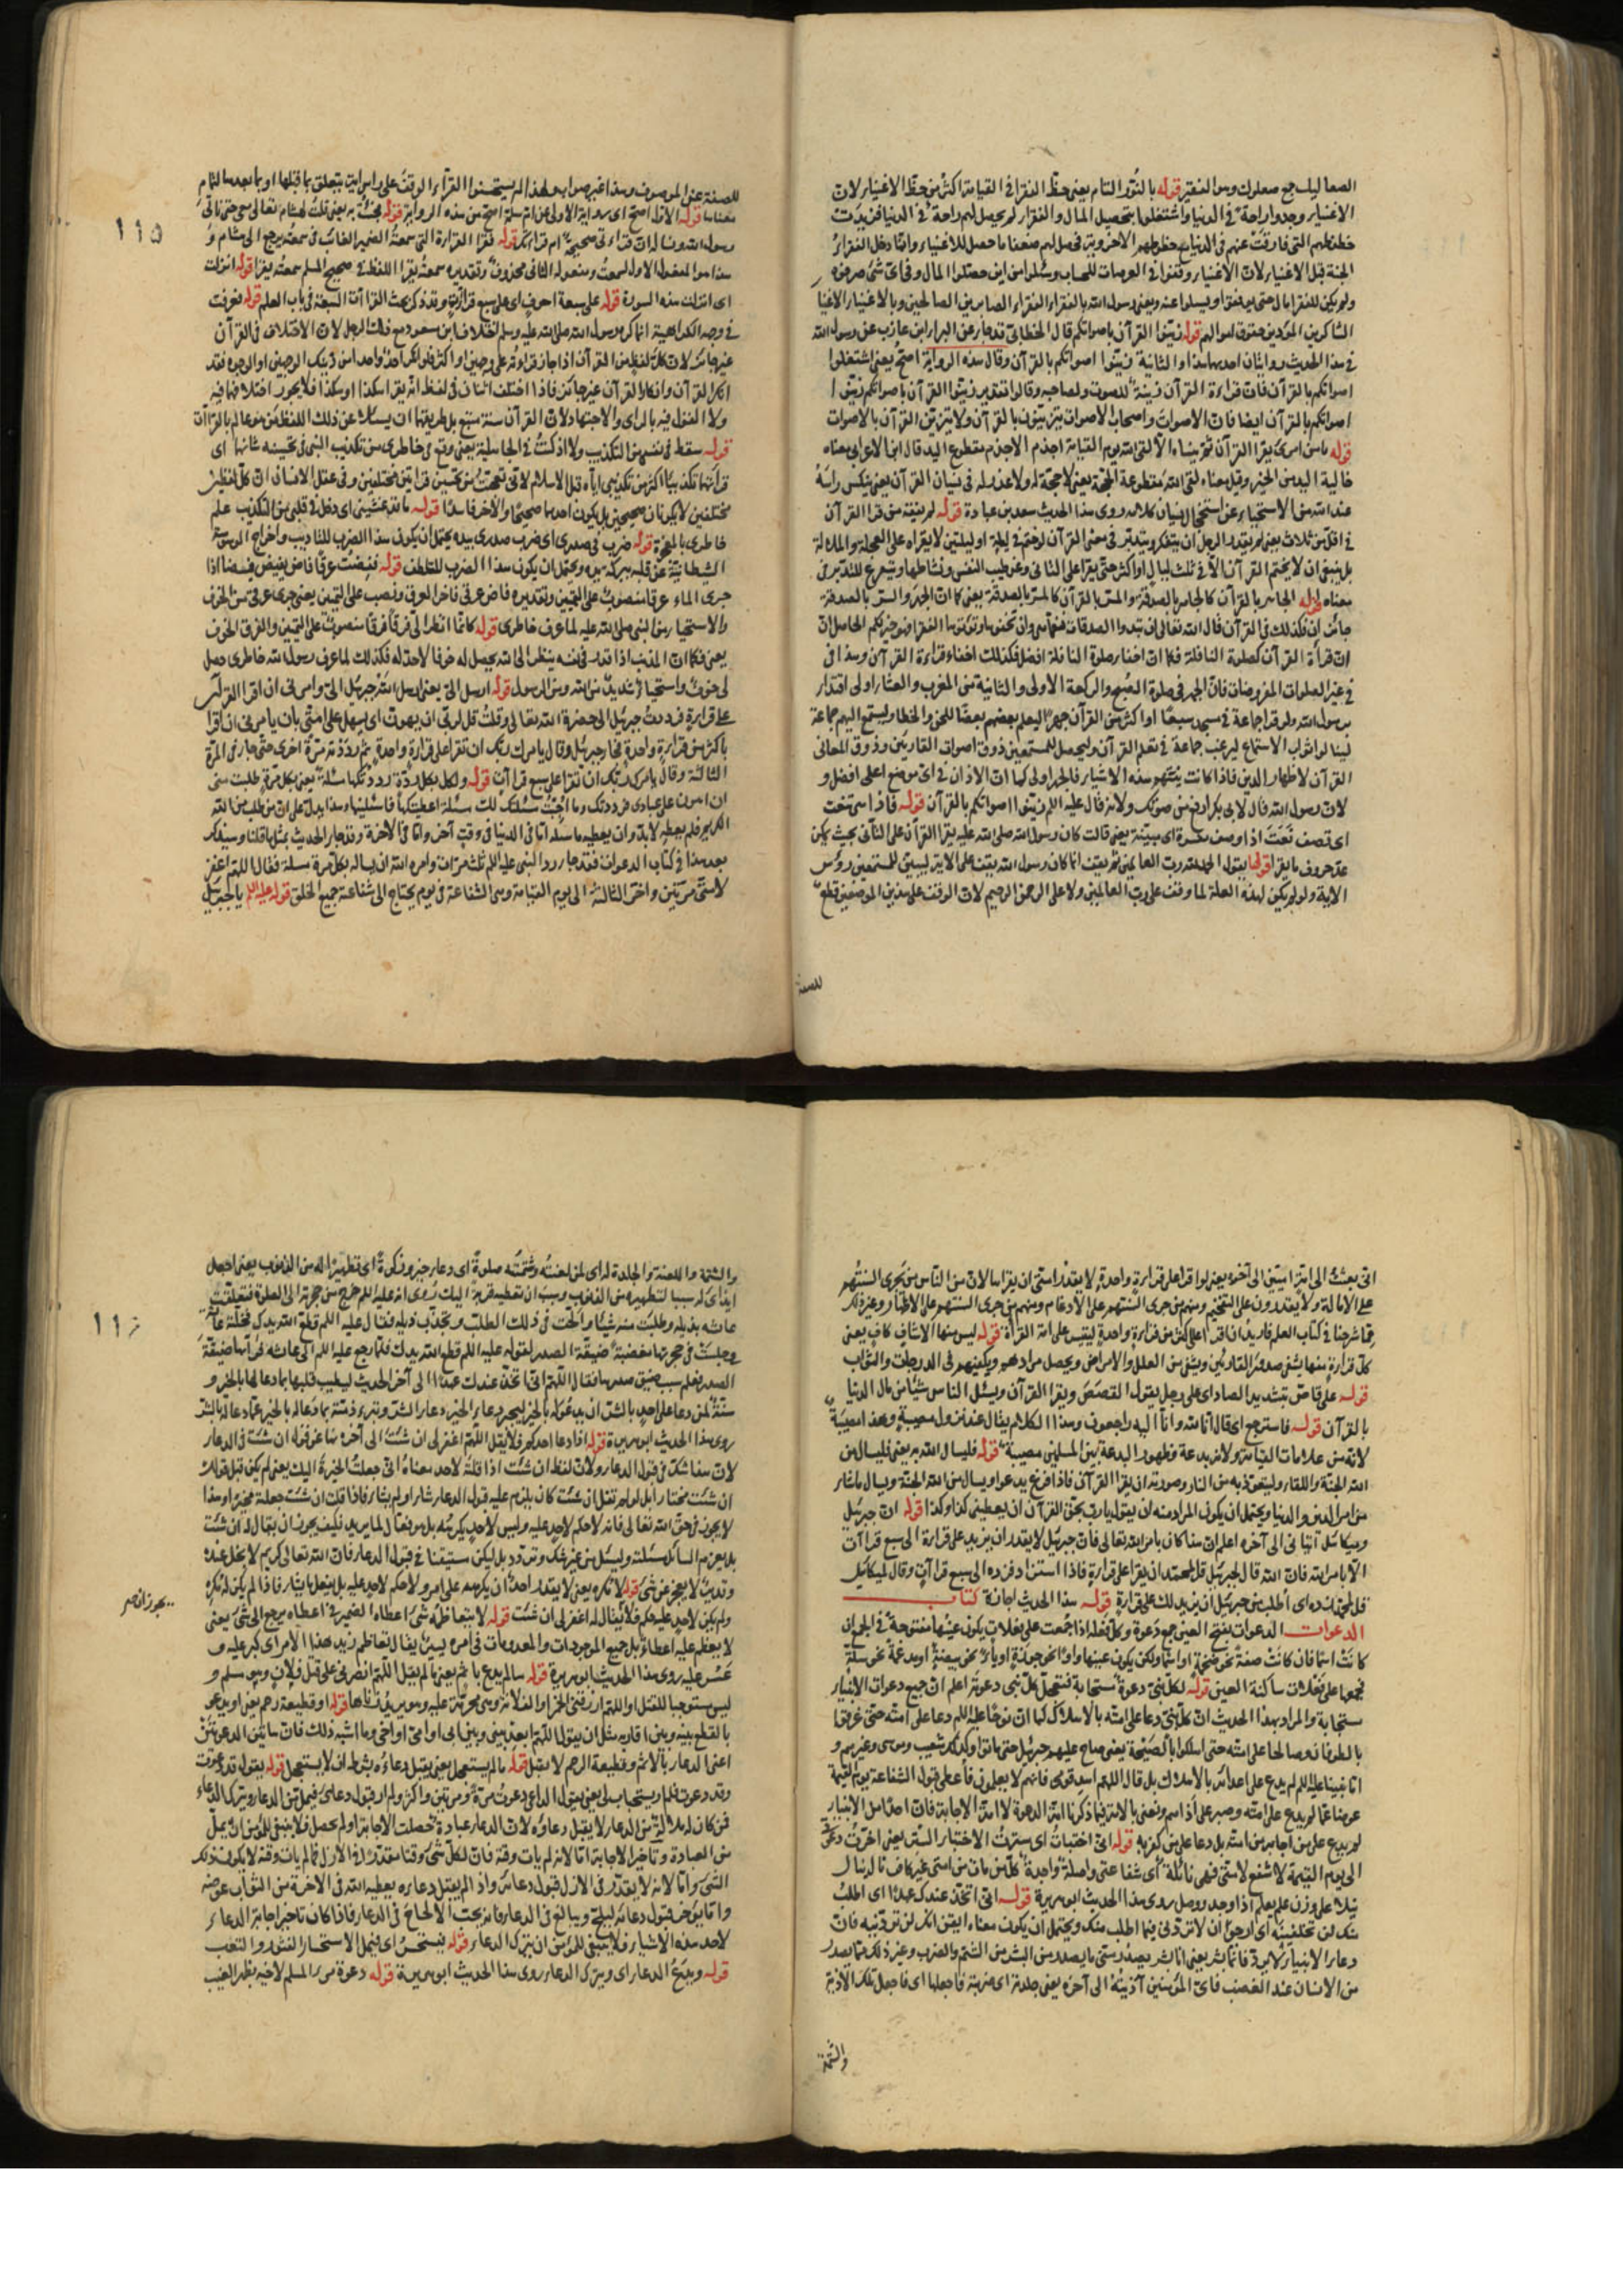 الصعاليك جمع صعلوك وهو الفقير قوله بالنور التام يعني حظ الفقراء في القيامة اكثر من حظ الاغنياء لان
الاغنياء وجدوا راحة في الدنيا واشتغلوا بتحصيل المال والفقراء لم يحصل لهم راحة في الدنيا
الجنة قبل الاغنياء لان الاغنياء وقفوا في العرصات للحساب وسئلوا من اين حصلوا المال وفي اي شئ صرفوه
ولم يكن للفقراء مال حتى يوقفوا ويسئلوا عنه ويعني رسول الله بالفقراء الفقراء الصابرين الصالحين وبالاغنياء الاغنياء
الشاكرين المؤدين حقوق اموالهم قوله زينوا القرآن باصواتكم قال الخطابي قد جاء عن البراء ابن عازب عن رسول الله
في هذا الحديث روايتان احديهما هذا والثانية زينوا اصواتكم بالقرآن وقال هذه الرواية اصح يعني اشتغلوا
اصواتكم بالقرآن فان قراءة القرآن زينة للصوت ولصاحبه وقالوا تقدير زينوا القرآن باصواتكم زينوا
اصواتكم بالقرآن ايضا فان الاصوات واصحاب الاصوات يتزينون بالقرآن ولا يتزين القرآن بالاصوات
قوله ما من امرئ يقرا القرآن ثم ينساه الا لقي الله يوم القيامة اجذم الاجذم مقطوع اليد قال ابن الاعرابي معناه
خالية اليد من الخير وقيل معناه لقي الله مقطوعة الحجة يعني لا حجة له ولا عذر له في نسيان القرآن يعني ينكس راسه
عند الله من الاستحياء عن نسيان كلامه روى هذا الحديث سعد بن عبادة قوله لم يفقه من قرا القرآن
في اقل من ثلاث يعني لم يقدر الرجل ان يتفكر ويتدبر في معنى القرآن لو ختم في ليلة او ليلتين لا يقراه على العجلة والملالة
بل ينبغي ان لا يختم القرآن الا في ثلث ليال او اكثر حتى يقرا على التأني وعن طيب النفس ونشاطها ويتفرغ للتدبر في
معناه قوله الجاهر بالقرآن كالجاهر بالصدقة والمسر بالقرآن كالمسر بالصدقة يعني كما ان الجهر والسر بالصدقة
جائزان فكذلك في القرآن قال الله تعالى ان تبدوا الصدقات فنعما هي وان تخفوها وتؤتوها الفقراء فهو خير لكم الحاصل ان
قراءة القرآن كصلوة النافلة فكما ان اخفاء صلوة النافلة افضل فكذلك اخفاء قراءة القرآن وهذا في
في غير الصلوات المفروضات فان الجهر في صلوة الصبح والركعة الاولى والثانية من المغرب والعشاء اولى اقتداء
برسول الله ولو قرا جماعة في مسجد سبعا او اكثر من القرآن جهرا ليعلم بعضهم بعضا وليستمع اليهم جماعة
لينالوا ثواب الاستماع ليرغب جماعة في تعلم القرآن وليحصل للمستمعين ذوق اصوات القارئين وذوق المعاني
القرآن لاظهار الدين فاذا كانت نيتهم هذه الاشياء فالجهر اولى كما ان الاذان في اي موضع اعلى افضل و
لان رسول الله قال لابي بكر ارفع من صوتك ولانه قال عليه السلام زينوا اصواتكم بالقرآن قوله فاذا هي تنعت
اي تصف نعت اذا وصف مفسرة اي مبينة يعني قالت كان رسول الله صلى الله عليه يقرا القرآن على التأني بحيث يمكن
عد حروف ما يقرا قولها يقول الحمد لله رب العالمين ثم يقف انما كان رسول الله يقف على الآية ليبين للمستمعين رؤس
الآية ولو لم يكن لهذه العلة لما وقف على رب العالمين ولا على الرحمن الرحيم لان الوقف على هذين الموضعين قطع
للصفة
١١٥
للصفة عن الموصوف وهذا غير صواب ولهذا لم يستحسنوا القرآء الوقف
معناها قوله الاول اصح اي رواية الاولى عن ام سلمة اصح من هذه الرواية قوله فجئت به يعني قلت لهشام تعالى معي حتى نأتي
قوله فقرا القراءة التي سمعته الضمير الغائب في سمعته يرجع الى هشام و
هذا هو المفعول الاول لسمعت ومفعوله الثاني محذوف وتقديره سمعته يقرا اللفظ في صحيح المسلم سمعته يقرا قوله انزلت
اي انزلت هذه السورة قوله على سبعة احرف اي على سبع قراءات وقد ذكر بحث القراآت السبعة في باب العلم قوله فعرفت
في وجهه الكراهية انما كره رسول الله صلى الله عليه وسلم اختلاف ابن مسعود مع ذلك الرجل لان الاختلاف في القرآن
غير جائز لان كل لفظ من القرآن اذا جاز قراءته على وجهين او اكثر فلو انكر احد واحدا من ذينك الوجهين او الوجوه فقد
انكر القرآن وانكار القرآن غير جائز فاذا اختلف اثنان في لفظ انه يقرا هكذا او هكذا فلا يجوز اختلافهما فيه
ولا القول فيه بالراي والاجتهاد لان القرآن سنة متبع بل طريقهما ان يسالا عن ذلك اللفظ من هو عالم بالقراآت
قوله سقط في نفسي من التكذيب ولا اذ كنت في الجاهلية يعني وقع في خاطري من تكذيب النبي في تحسينه شانهما اي
قرائتهما تكذيبا اكثر من تكذيبي اياه قبل الاسلام لاني تعجبت من تحسين قرائتين مختلفتين وفي عقل الانسان ان كل لفظين
مختلفين لا يكونان صحيحين بل يكون احدهما صحيحا والآخر فاسدا قوله ما قد غشيني اي دخل في قلبي من التكذيب علم
خاطري بالمعجزة قوله ضرب في صدري اي ضرب صدري بيده يحتمل ان يكون هذا الضرب للتاديب واخراج الوسوسة
الشيطانية عن قلبه ببركة يده ويحتمل ان يكون هذا الضرب للتلطف قوله ففضت عرقا فاض يفيض فيضا اذا
جرى الماء عرقا منصوب على التمييز وتقديره فاض عرقي فاخر العرق ونصب على التمييز يعني جرى عرقي من الخوف
والاستحياء من النبي صلى الله عليه لما عرف خاطري قوله كانما انظر الى الله فرقا فرقا منصوب على التمييز والفرق الخوف
يعني فكما ان المذنب اذا قدر في نفسه ينظر الى الله يحصل له خوف لا حد له فكذلك لما عرف رسول الله خاطري حصل
لي خوف واستحياء شديد من الله ومن الرسول قوله ارسل الي يعني ارسل الله جبرئيل الي وامرني ان اقرا القرآن
على قراءة فرددت جبرئيل الى حضرة الله تعالى وقلت قل لربي ان يهون اي يسهل على امتي بان يامرني ان اقرا
باكثر من قراءة واحدة فجاء جبرئيل وقال يامرك ربك ان تقرا على قراءة واحدة ثم رددته مرة اخرى حتى جاءني المرة
الثالثة وقال يامرك ربك ان تقرا على سبع قراآت قوله ولك بكل ردة رددتكها مسئلة يعني بكل مرة طلبت مني
ان اهون على عبادي
الكريم فله يعطيه لابد وان يعطيه ما سئله اما في الدنيا في وقت آخر واما في الآخرة وقد جاء الحديث بمثل ما قلنا وسيذكر
بعد هذا في كتاب الدعوات فقد جاء رد النبي عليه السلم ثلث مرات وامره الله ان يساله بكل مرة مسئلة فقال اللهم اغفر
لامتي مرتين واخر الثالثة الى يوم القيامة وهي الشفاعة في يوم يحتاج الى شفاعته جميع الخلق قوله عليه السلم يا جبرئيل
اني بعثت الى امة اميين الى آخره يعني لو اقرا على قراءة واحدة لا يقدر امتي ان يقراها لان من الناس من جرى السنتهم
على الامالة ولا يقدرون على التفخيم ومنهم من جرى السنتهم على الادغام ومنهم من جرى السنتهم على الاظهار وغير ذلك
مما شرحنا في كتاب العلم فاريد ان اقرا على اكثر من قراءة واحدة ليتيسر على امتي القراءة قوله ليس منها الا شاف كاف يعني
كل قراءة منها يشفي صدور القارئين ويشفي من العلل والامراض ويحصل مرادهم ويكفيهم في الدرجات والثواب
قوله على قاص بتشديد الصاد اي على رجل يقول القصص ويقرا القرآن ويسئل الناس شيئا من مال الدنيا
بالقرآن قوله فاسترجع اي قال انا لله وانا اليه راجعون وهذا الكلام يقال عند نزول مصيبة وهذه مصيبة
لانه من علامات القيامة ولانه بدعة وظهور البدعة بين المسلمين مصيبة قوله فليسال الله به يعني فليسال من
الله الجنة واللقاء وليتعوذ به من النار وصورته ان يقرا القرآن فاذا فرغ يدعو ويسال من الله الجنة ويسال ما شاء
من امر الدين والدنيا ويحتمل ان يكون المراد منه ان يقول يا رب بحق القرآن ان يعطيني كذا وكذا قوله ان جبرئيل
وميكائيل اتياني الى آخره اعلم ان هذا كان بامر الله تعالى فان جبرئيل لا يقدر ان يزيد على قراءة الى سبع قراآت
الا بامر الله فان الله قال لجبرئيل قل لمحمد ان يقرا على قراءة فاذا استزاد فزده الى سبع قراآت وقال لميكائيل
قل لمحمد استزده اي اطلب من جبرئيل ان يزيد لك على قراءة قوله هذا الحديث كتاب
الدعوات الدعوات بفتح العين جمع دعوة وكل فعلة اذا جمعت على فعلات يكون عينها مفتوحة في الجمع ان
كانت اسما فان كانت صفة نحو ضخمة او اسما ولكن يكون عينها واوا نحو جوزة او ياء نحو بيضة او مدغمة نحو سلة
فجمعها على فعلات ساكنة العين قوله لكل نبي دعوة مستجابة فتعجل كل نبي دعوته اعلم ان جميع دعوات الانبياء
مستجابة والمراد بهذا الحديث ان كل نبي دعا على امته بالاهلاك كما ان نوحا عليه السلم دعا على امته حتى غرقوا
بالطوفان وصالحا على امته حتى اهلكوا بالصيحة يعني صاح عليهم جبرئيل حتى ماتوا وكذلك شعيب وموسى وغيرهم و
اما نبينا عليه السلم لم يدع على اعدائه بالاهلاك بل قال اللهم اهد قومي فانهم لا يعلمون فاعطي قبول الشفاعة يوم القيمة
عوضا عما لم يدع على امته وصبر على اذاهم ونعني بالامة فيما ذكرنا امة الدعوة لا امة الاجابة فان احدا من الانبياء
لم يدع على من اجابه من امته بل دعا على من كفر به قوله اني اختبات اي سترت الاختباء الستر يعني اخرت دعوتي
الى يوم القيمة لا اشفع لامتي فهي نائلة اي شفاعتي واصلة واحدة كل من مات من امتي غير كافر نال ينال
نيلا على وزن علم يعلم اذا وجد ووصل روى هذا الحديث ابو هريرة قوله اني اتخذ عندك عهدا اي اطلب
منك لن تخلفنيه اي ارجو ان لا تردني فيما اطلب منك ويحتمل ان يكون معناه ايقن انك لن تردنيه فان
دعاء الانبياء لا يرد فانما انا بشر يعني انا بشر يصدر مني ما يصدر من البشر من الشتم والضرب وغير ذلك مما يصدر
من الانسان عند الغضب فاي المؤمنين آذيته الى آخره يعني جلدته اي ضربته فاجعلها اي فاجعل تلك الاذية
والشتمة
والشتمة واللعنة والجلدة له اي لمن لعنته وشتمته صلوة اي دعاء خير وزكوة اي تطهيرا له من الذنوب يعني اجعل
ايذائي له سببا لتطهيره من الذنوب روي انه عليه السلم خرج من حجرته الى الصلوة فتعلقت
عائشه بذيله وطلبت منه شيئا والحت في ذلك الطلب وتجذب ذيله فقال عليه السلم قطع الله يدك فخلته
وجلست في حجرتها مغضبة ضيقة الصدر لقوله عليه السلم قطع الله يدك فلما رجع عليه السلم الى عائشه فرآها ضيقة
الصدر فعلم سبب ضيق صدرها فقال اللهم اني اتخذ عندك عهدا الى آخر الحديث ليطيب قلبها بما دعا لها بالخير و
سنة لمن دعا على احد بالشر ان يدعو له بالخير ليجبر دعاء الخير دعاء الشر
روى هذا الحديث ابو هريرة قوله اذا دعا احدكم فلا يقل اللهم اغفر لي ان شئت الى آخره نهى عن قوله ان شئت في الدعاء
لان هذا شك في قبول الدعاء ولان لفظ ان شئت اذا قلته لاحد معناه اني جعلت الخيرة اليك يعني لم يكن قبل قولك
ان شئت مختارا بل لو لم تقل ان شئت كان يلزم عليه قبول الدعاء شاء او لم يشاء فاذا قلت ان شئت جعلته مخيرا وهذا
لا يجوز في حق الله تعالى فانه لا حكم لاحد عليه وليس لاحد يكرهه بل هو فعال لما يريد فكيف يجوز ان يقال له ان شئت
بل يعزم السائل مسئلته وليسئل من غير شك وتردد بل ليكن متيقنا في قبول الدعاء فان الله تعالى كريم لا بخل عنده
وقدير لا يعجز عن شئ قوله لا مكره يعني لا يقدر احد ان يكرهه على امر ولا حكم لاحد عليه بل يفعل ما يشاء فاذا لم يكن له مكره
ولم يكن لاحد عليه حكم فلا يقال له اغفر لي ان شئت قوله لا يتعاظمه شئ اعطاه الضمير في اعطاه يرجع الى شئ يعني
لا يعظم عليه اعطاء شئ بل جميع الموجودات والمعدومات في امره يسير يقال تعاظم زيد هذا الامر اي كبر عليه و
عسر عليه روى هذا الحديث ابو هريرة قوله ما لم يدع باثم يعني ما لم يقل اللهم انصرني على قتل فلان وهو مسلم و
ليس مستوجبا للقتل او اللهم ارزقني الخمر او الفلانة وهي محرمة عليه قوله او قطيعة رحم يعني او يدعو
بالقطع بينه وبين اقاربه مثل ان يقول اللهم ابعد بيني وبين ابي او امي او اخي وما اشبه ذلك فان هاتين الدعوتين
اعني الدعاء بالاثم وقطيعة الرحم لا يقبل قوله ما لم يستعجل يعني يقبل دعاءه بشرط ان لا يستعجل قوله يقول قد دعوت
وقد دعوت فلم ار يستجاب لي يعني يقول الداعي دعوت مرة ومرتين واكثر ولم ار قبول دعائي فيمل من الدعاء ويترك الدعاء
فمن كان له ملالة من الدعاء لا يقبل دعاؤه لان الدعاء عبادة حصلت الاجابة او لم يحصل فلا ينبغي للمؤمن ان يمل
من العبادة وتاخير الاجابة اما لانه لم يات وقته فان لكل شئ وقتا مقدرا في الازل فما لم يات وقته لا يكون ذلك
الشئ واما لانه لا يقدر في الازل قبول دعائه واذ لم يقبل دعاءه يعطيه الله في الآخرة من الثواب عوضه
واما يؤخر قبول دعائه ليلح ويبالغ في الدعاء فانه يحب الالحاح في الدعاء فاذا كان تاخير اجابة الدعاء
لاحد هذه الاشياء فلا ينبغي للمؤمن ان يترك الدعاء قوله فيستحسر اي فيمل الاستحسار
قوله ويدع الدعاء اي ويترك الدعاء روى هذا الحديث ابو هريرة قوله دعوة المرء المسلم لاخيه بظهر الغيب